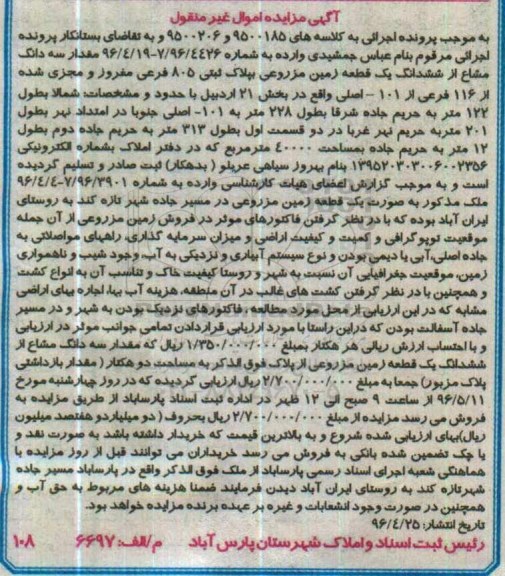 آگهی مزایده اموال غیر منقول
به موجب پرونده اجرائی به کلاسه های ۹۵۰۰۱۸۵ و ۹۵۰۰۲۰۶ و به تقاضای بستانکار پرونده
اجرائی مرقوم بنام عباس جمشیدی وارده به شماره ۷/۹۶/۴۴۲۶-۹۶/۴/۱۹ مقدار سه دانگ
مشاع از ششدانگ یک قطعه زمین مزروعی بپلاک ثبتی ۸۰۵ فرعی مفروز و مجزی شده
از ۱۱۶ فرعی از ۱۰۱ - اصلی واقع در بخش ۲۱ اردبیل با حدود و مشخصات: شمالا بطول
۱۲۲ متر به حریم جاده شرقا بطول ۲۲۸ متر به ۱۰۱- اصلی جنوبا در امتداد نهر بطول
۲۰۱ متربه حریم نهر غربا در دو قسمت اول بطول ۳۱۳ متر به حریم جاده دوم بطول
۱۲ متر به حریم جاده بمساحت ۴۰۰۰۰ مترمربع که در دفتر املاک بشماره الکترونیکی
۱۳۹۵۲۰۳۰۳۰۰۶۰۰۲۳۵۶ بنام بهروز سیاهی عربلو ( بدهکار) ثبت صادر و تسلیم گردیده
است و به موجب گزارش اعضای هیات کارشناسی وارده به شماره ۷/۹۶/۳۹۰۱-۹۶/۴/۴
ملک مذکور به صورت یک قطعه زمین مزروعی در مسیر جاده شهر تازه کند به روستای
ایران آباد بوده که با در نظر گرفتن فاکتورهای موثر در فروش زمین مزروعی از آن جمله
موقعیت توپوگرافی و کمیت و کیفیت اراضی و میزان سرمایه گذاری، راههای مواصلاتی به
جاده اصلی،آبی یا دیمی بودن و نوع سیستم آبیاری و نزدیکی به آب، وجود شیب و ناهمواری
زمین، موقعیت جغرافیایی آن نسبت به شهر و روستا کیفیت خاک و تناسب آن به انواع کشت
و همچنین با در نظر گرفتن کشت های غالب در آن منطقه، هزینه آب بها، اجاره بهای اراضی
مشابه که در این ارزیابی از محل مورد مطالعه ،فاکتورهای نزدیک بودن به شهر و در مسیر
جاده آسفالت بودن که دراین راستا با مورد ارزیابی قراردادن تمامی جوانب موثر در ارزیابی
و با احتساب ارزش ریالی هر هکتار بمبلغ ۱/۳۵۰/۰۰۰/۰۰۰ ریال که مقدار سه دانگ مشاع از
ششدانگ یک قطعه زمین مزروعی از پلاک فوق الذکر به مساحت دو هکتار ( مقدار بازداشتی
پلاک مزبور) جمعا به مبلغ ۲/۷۰۰/۰۰۰/۰۰۰ ریال ارزیابی گردیده که در روز چهارشنبه مورخ
۹۶/۵/۱۱ از ساعت ۹ صبح الی ۱۲ ظهر در اداره ثبت اسناد پارساباد از طریق مزایده به
فروش می رسد مزایده از مبلغ ۲/۷۰۰/۰۰۰/۰۰۰ ریال بحروف ( دو میلیاردو هفتصد میلیون
ریال)بهای ارزیابی شده شروع و به بالاترین قیمت که خریدار داشته باشد به صورت نقد و
یا چک تضمین شده بانکی به فروش می رسد خریداران می توانند قبل از روز مزایده با
هماهنگی شعبه اجرای اسناد رسمی پارساباد از ملک فوق الذکر واقع در پارساباد مسیر جاده
شهرتازه کند به روستای ایران آباد دیدن فرمایند ضمنا هزینه های مربوط به حق آب و
همچنین در صورت وجود انشعابات و غیره بر عهده برنده مزایده خواهد بود.
تاریخ انتشار: ۹۶/۴/۲۵
رئیس ثبت اسناد و املاک شهرستان پارس آباد م/الف: ۶۶۹۷ ۱۰۸